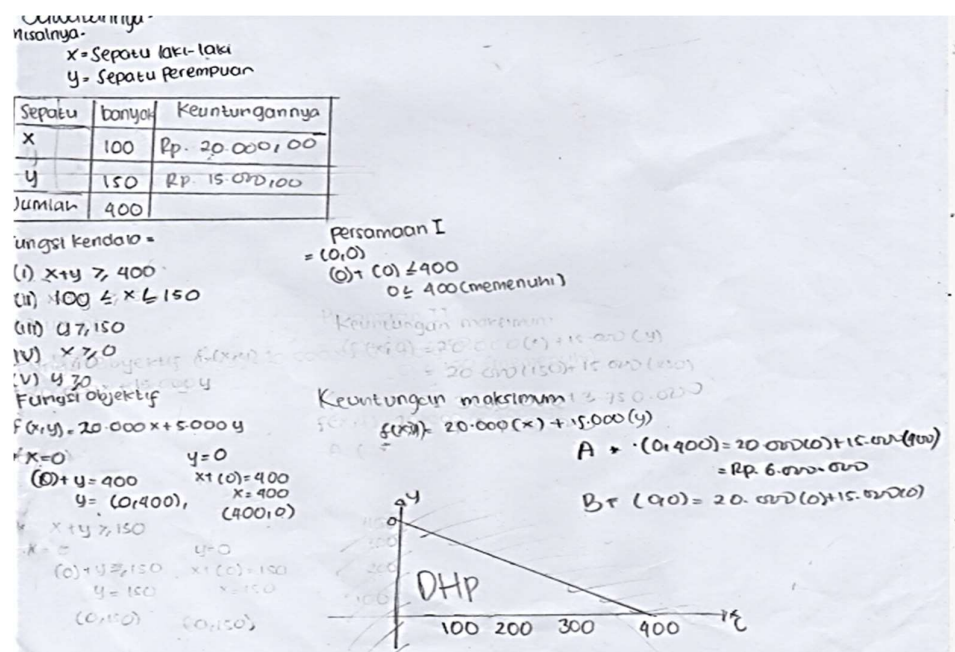 misalnya.
x = Sepatu laki-laki
y = Sepatu Perempuan
Sepatu banyak Keuntungannya
x 100 Rp. 20.000,00
y 150 Rp. 15.000,00
Jumlah 400
ungsi kendala =
(i) x+y ≥ 400
(ii) 100 ≤ x ≤ 150
(iii) y ≥ 150
(iv) x ≥ 0
(v) y ≥ 0
Fungsi objektif
f(x,y) = 20.000x + 5.000y
x=0 y=0
(0)+y = 400 x+(0)=400
y = (0,400), x = 400
(400,0)
x+y ≥ 150
y=0
(0)+y ≥ 150 x+(0)=150
y = 150 x=150
(0,150) (0,150)
Persamaan I
= (0,0)
(0)+(0) ≤ 400
0 ≤ 400 (memenuhi)
Keuntungan maksimum
Keuntungan maksimum
f(x,y) = 20.000(x) + 15.000(y)
A (0,400) = 20.000(0)+15.000(400)
= Rp. 6.000.000
B (0,0) = 20.000(0)+15.000(0)
y
DHP
100 200 300 400